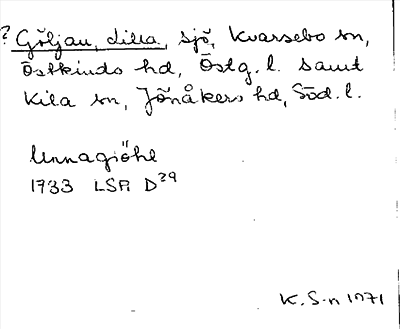 ? Göljau, Lilla, sjö, Kvarsebo sn,
Östkinds hd, Östg. l. samt
Kila sn, Jönåkers hd, Söd. l.
Unnagiöhl
1733 LSA D²⁹
K. S-n 1971